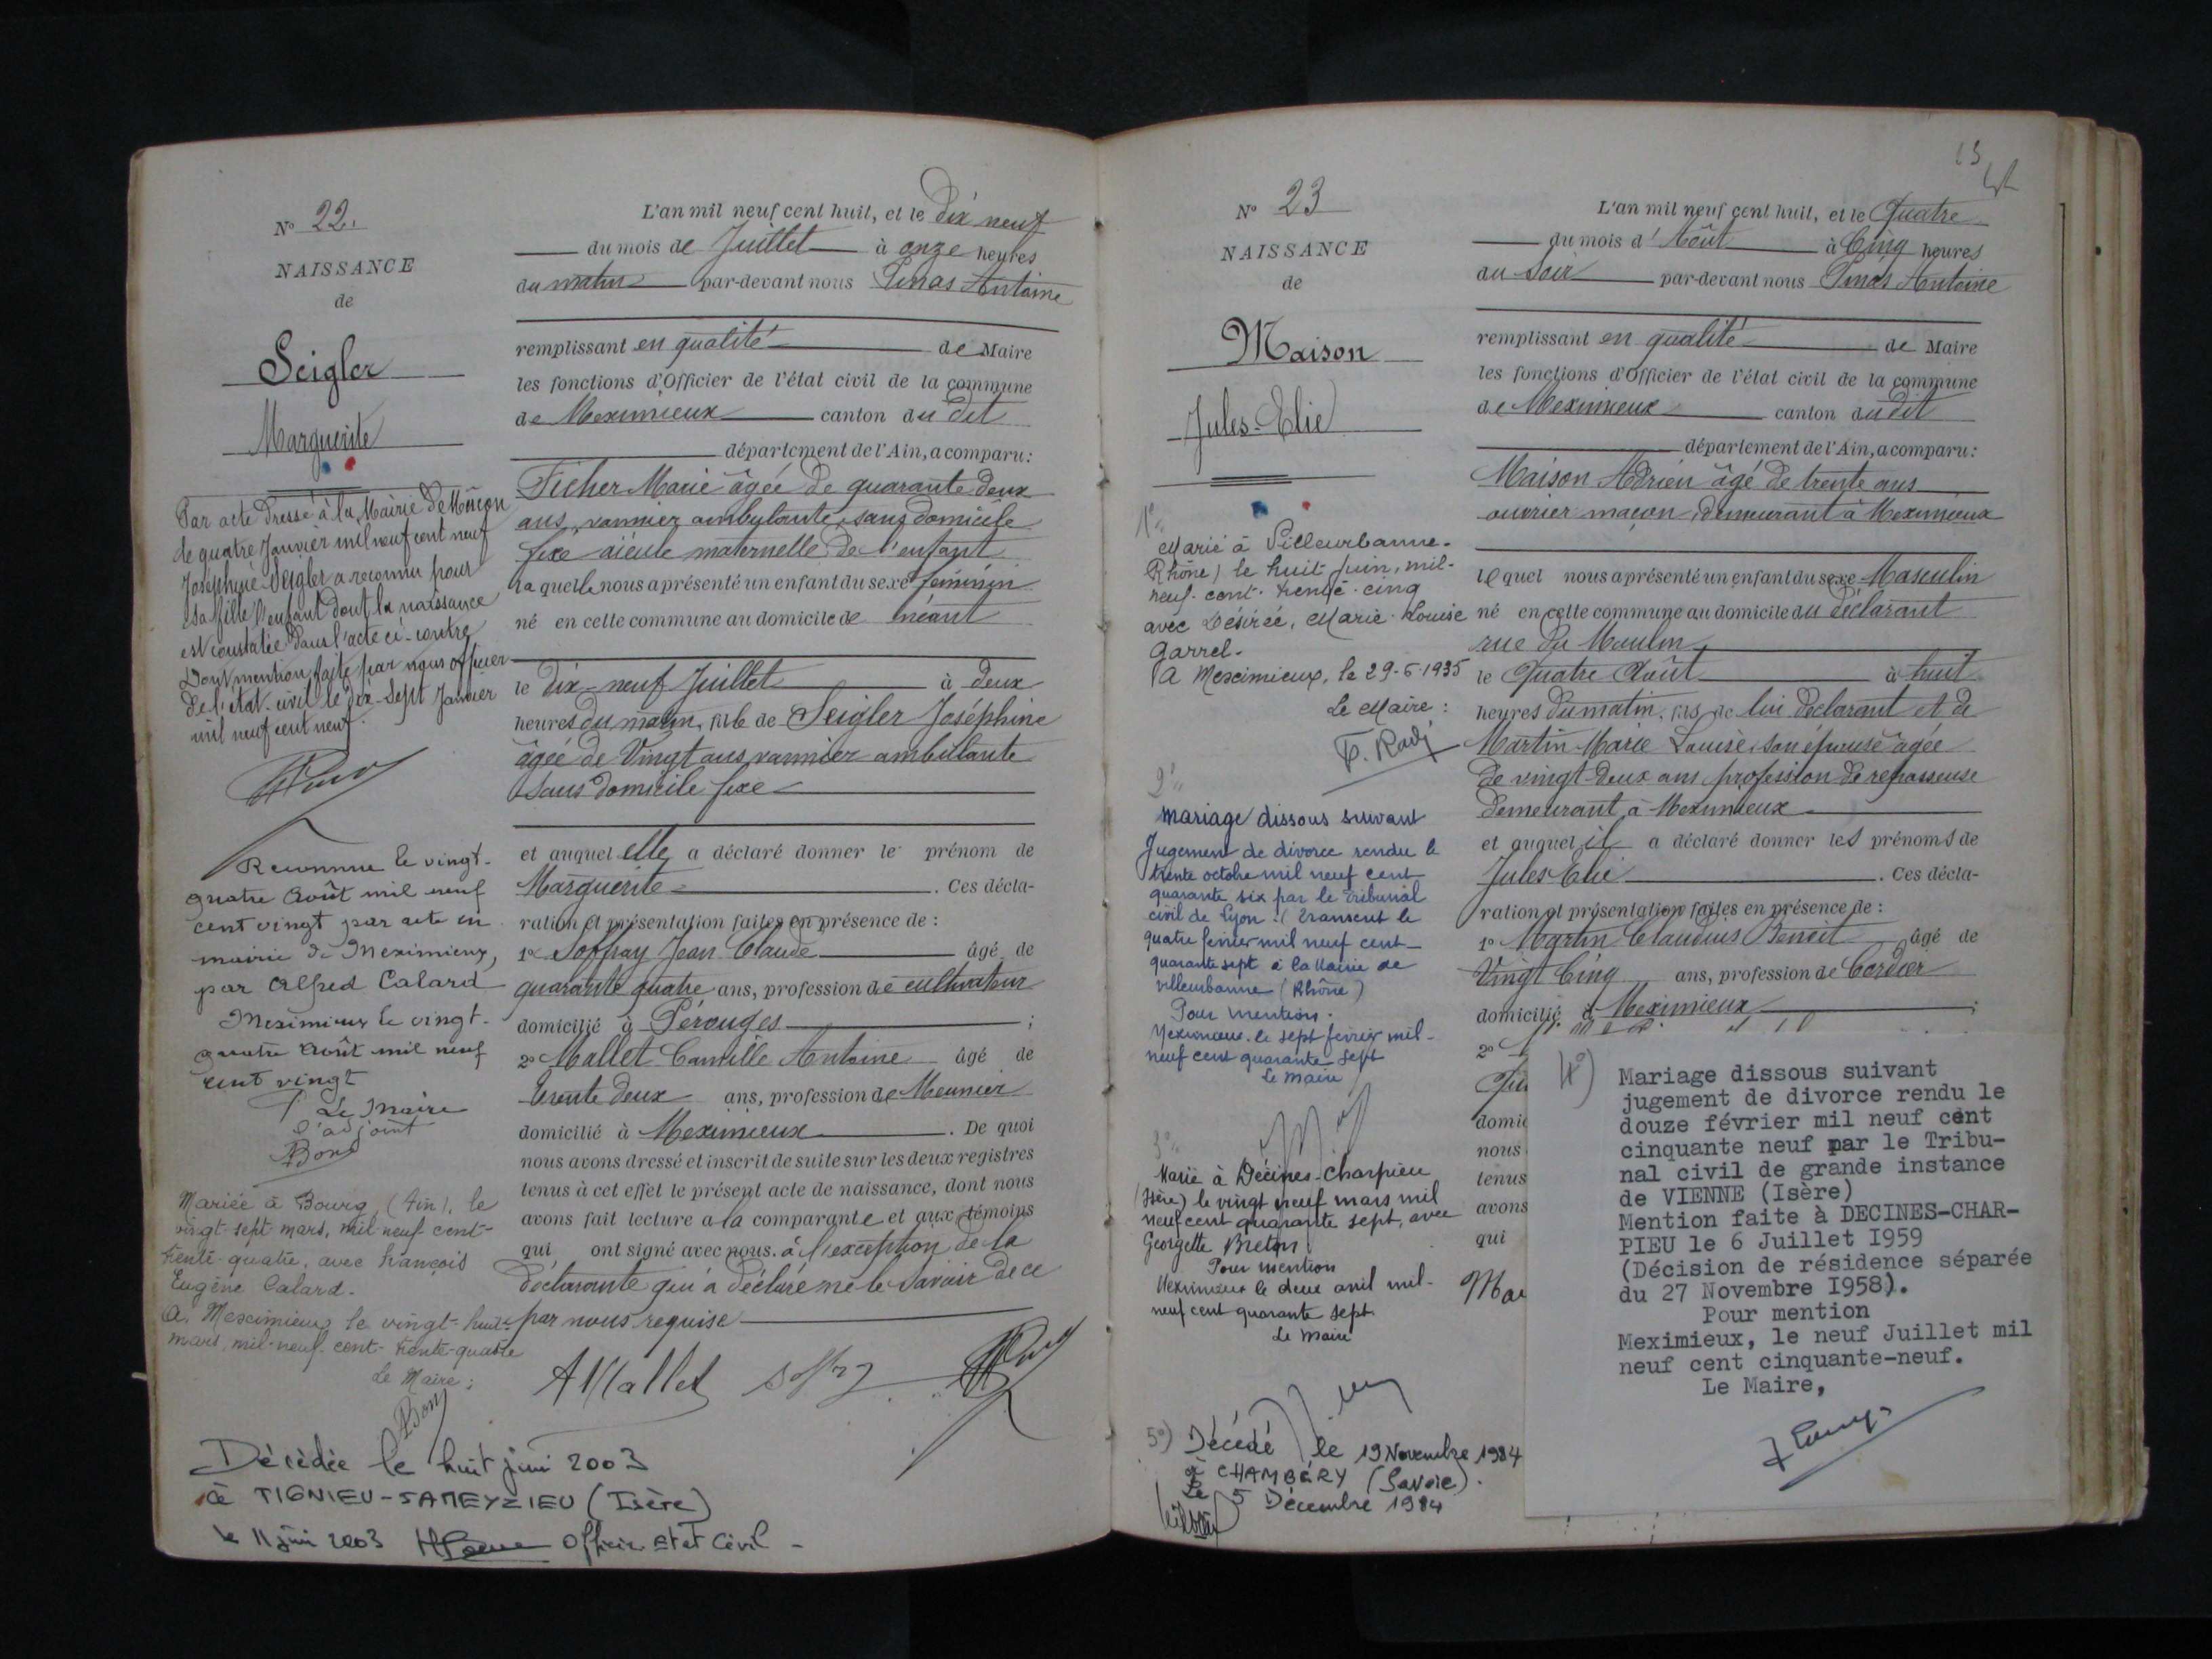 N° 22.
NAISSANCE
de
Seigler
Marguerite
Par acte dressé à la Mairie de Mâcon
le quatre Janvier mil neuf cent neuf
Joséphine Seigler a reconnu pour
sa fille l'enfant dont la naissance
est constatée dans l'acte ci-contre
Dont mention faite par nous officier
de l'état-civil le dix-sept Janvier
mil neuf cent neuf.
Reconnue le vingt-
quatre Août mil neuf
cent vingt par acte en
mairie de Meximieux,
par Alfred Calard
Meximieux le vingt-
quatre Août mil neuf
cent vingt
Le Maire
l'adjoint
Mariée à Bourg, (Ain), le
vingt-sept mars, mil-neuf-cent-
trente-quatre, avec François
Eugène Calard.
A Meximieux le vingt-huit
mars, mil-neuf-cent-trente-quatre
Le Maire :
Décédée le huit juin 2003
à TIGNIEU-JAMEYZIEU (Isère)
le 11 juin 2003 Officier Etat Civil -
L'an mil neuf cent huit, et le Dix neuf
du mois de Juillet à onze heures
du matin par-devant nous Pinas Antoine
remplissant en qualité de Maire
les fonctions d'Officier de l'état civil de la commune
de Meximieux canton du dit
département de l'Ain, a comparu:
Ficher Marie âgée de quarante deux
ans, vannier ambulante, sans domicile
fixe aïeule maternelle de l'enfant
laquelle nous a présenté un enfant du sexe féminin
né en cette commune au domicile de néant
le dix-neuf Juillet à deux
heures du matin, fille de Seigler Joséphine
âgée de Vingt ans vannier ambulante
sans domicile fixe
et auquel elle a déclaré donner le prénom de
Marguerite . Ces décla-
ration et présentation faites en présence de :
1° Soffray Jean Claude âgé de
quarante quatre ans, profession de cultivateur
domicilié à Pérouges ;
2° Mallet Camille Antoine âgé de
trente deux ans, profession de Meunier
domicilié à Meximieux . De quoi
nous avons dressé et inscrit de suite sur les deux registres
tenus à cet effet le présent acte de naissance, dont nous
avons fait lecture a la comparante et aux témoins
qui ont signé avec nous. à l'exception de la
déclarante qui a déclaré ne le savoir de ce
par nous requise
AMallet
N° 23
NAISSANCE
de
Maison
Jules-Elie
1°
Marié à Villeurbanne.
Rhône) le huit-juin, mil-
neuf-cent-trente-cinq
avec Désirée, Marie-Louise
Garrel.
A Meximieux, le 29-6-1935
Le Maire :
2°
Mariage dissous suivant
Jugement de divorce rendu le
trente octobre mil neuf cent
quarante six par le tribunal
civil de Lyon. (Transcrit le
quatre février mil neuf cent-
quarante sept à la Mairie de
Villeurbanne (Rhône)
Pour mention.
Meximieux le sept février mil-
neuf cent quarante sept
Le Maire
3°
Marié à Décines-Charpieu
(Isère) le vingt neuf mars mil
neuf cent quarante sept, avec
Georgette Breton.
Pour mention
Meximieux le deux avril mil-
neuf cent quarante sept
Le Maire
5°) Décédé le 19 Novembre 1984
à CHAMBÉRY (Savoie).
Le 5 Décembre 1984
L'an mil neuf cent huit, et le Quatre
du mois d'Août à Cinq heures
du soir par-devant nous Pinas Antoine
remplissant en qualité de Maire
les fonctions d'Officier de l'état civil de la commune
de Meximieux canton du dit
département de l'Ain, a comparu:
Maison Adrien âgé de trente ans
ouvrier maçon, demeurant à Meximieux
lequel nous a présenté un enfant du sexe Masculin
né en cette commune au domicile du déclarant
rue du Moulin
le Quatre Août à huit
heures du matin, fils de lui déclarant et de
Martin Marie Louise, son épouse âgée
de vingt-deux ans profession de repasseuse
demeurant à Meximieux
et auquel il a déclaré donner les prénoms de
Jules Elie . Ces décla-
ration et présentation faites en présence de :
1° Martin Claudius Benoit âgé de
Vingt Cinq ans, profession de Cordier
domicilié à Meximieux ;
2°
domic
nous
tenus
avons
qui
Mar
4°)
Mariage dissous suivant
jugement de divorce rendu le
douze février mil neuf cent
cinquante neuf par le Tribu-
nal civil de grande instance
de VIENNE (Isère)
Mention faite à DECINES-CHAR-
PIEU le 6 Juillet I959
(Décision de résidence séparée
du 27 Novembre I958).
Pour mention
Meximieux, le neuf Juillet mil
neuf cent cinquante-neuf.
Le Maire,